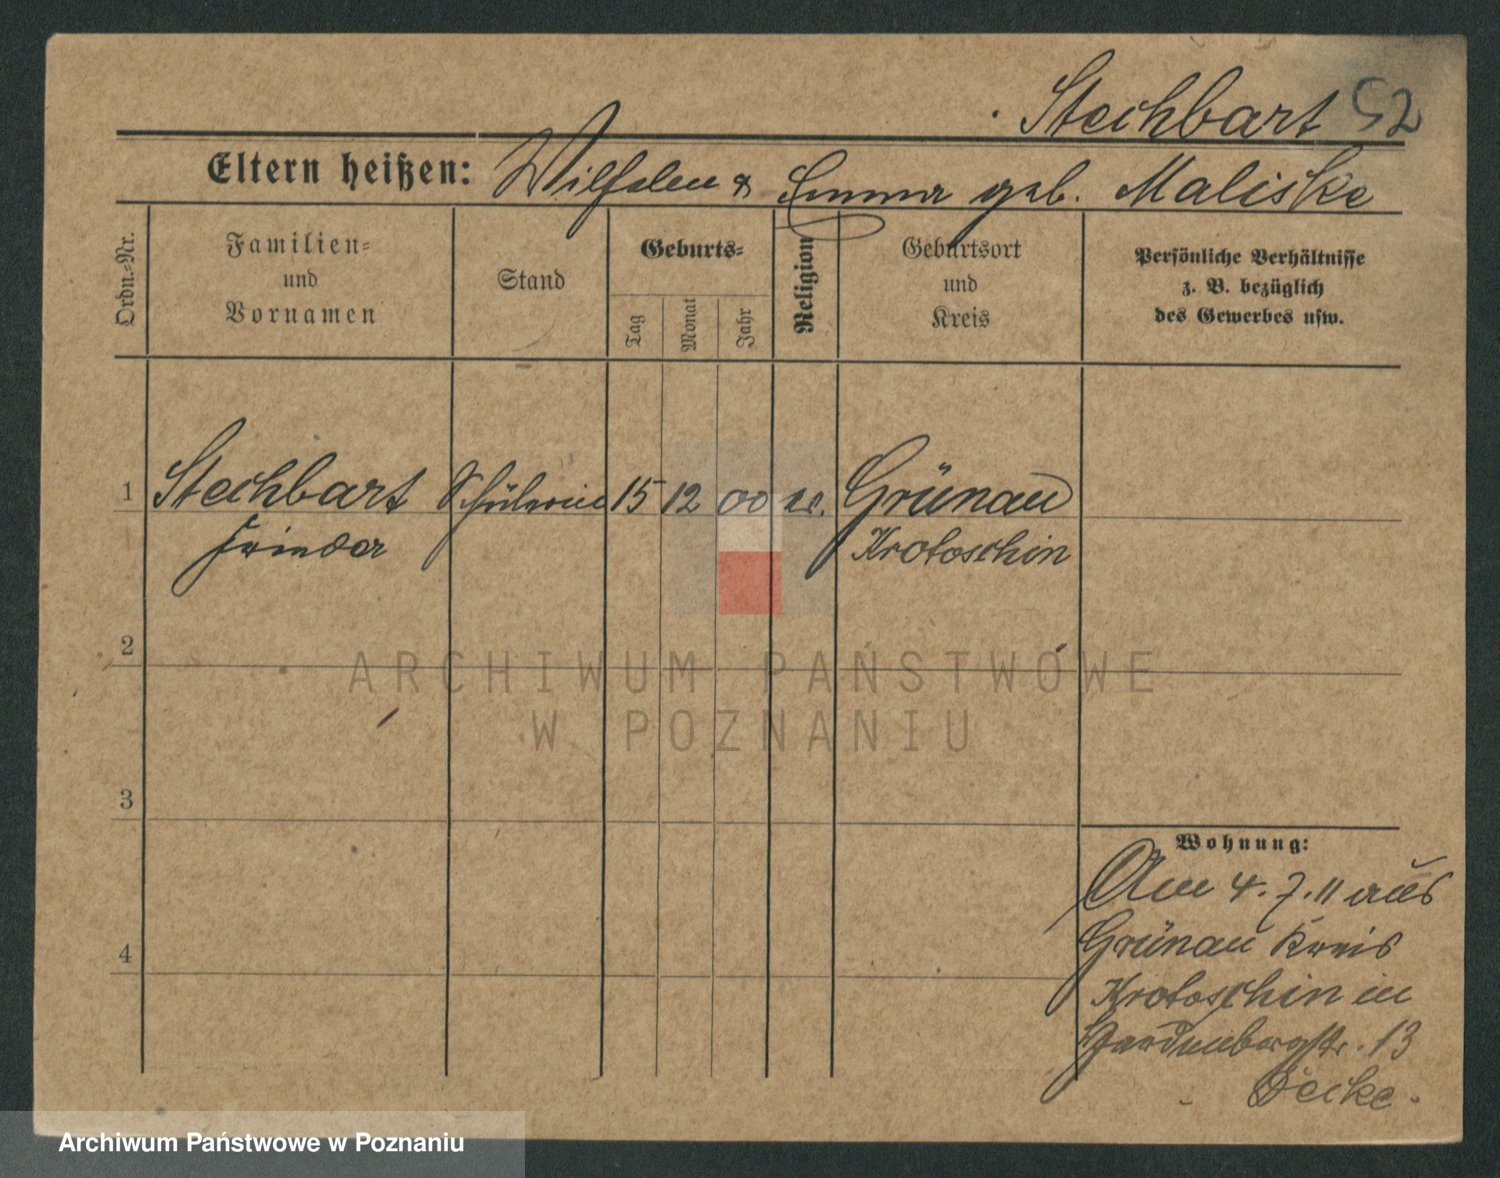 Stechbart 52
Eltern heißen: Wilhelm & Emma geb. Maliske
Ordn.-Nr.
Familien-
und
Vornamen
Stand
Geburts-
Tag
Monat
Jahr
Religion
Geburtsort
und
Kreis
Persönliche Verhältnisse
z. B. bezüglich
des Gewerbes usw.
1 Stechbart Schülerin 15 12 00 Grünau
Krotoschin
2
ARCHIWUM PAŃSTWOWE
W POZNANIU
3
4
Wohnung:
Am 4.7.11 aus
Grünau Kreis
Krotoschin in
Hardenbergstr. 13
Archiwum Państwowe w Poznaniu